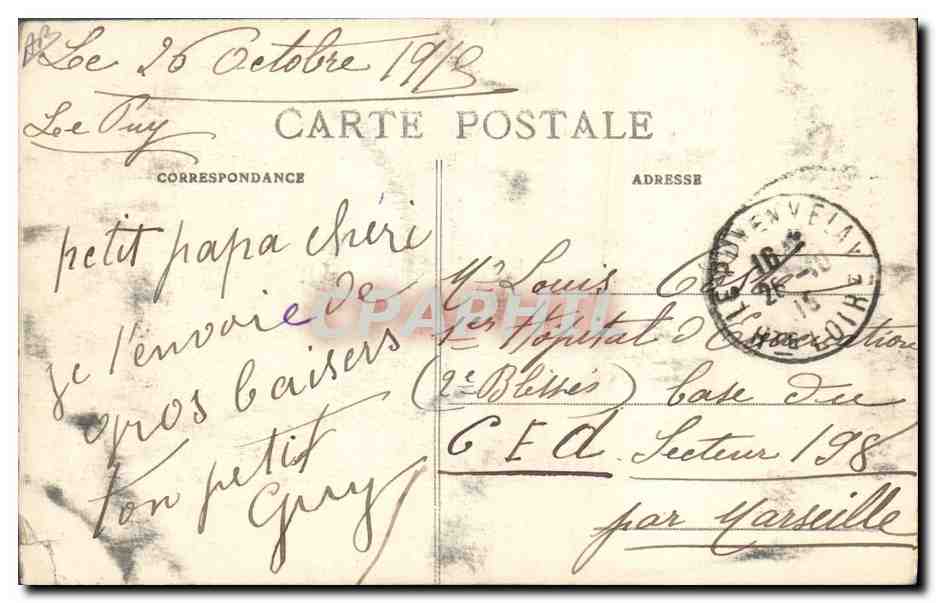 Le 26 Octobre 1915
Le Puy
CARTE POSTALE
CORRESPONDANCE
ADRESSE
petit papa chéri
je t'envoie de
gros baisers
ton petit
Guy
Mr Louis
1er Hôpital d'Evacuation
(2e Blessés) base du
C E d Secteur 198
par Marseille
LE PUY EN VELAY
16
26-10
15
HTE LOIRE
CPAPHIL